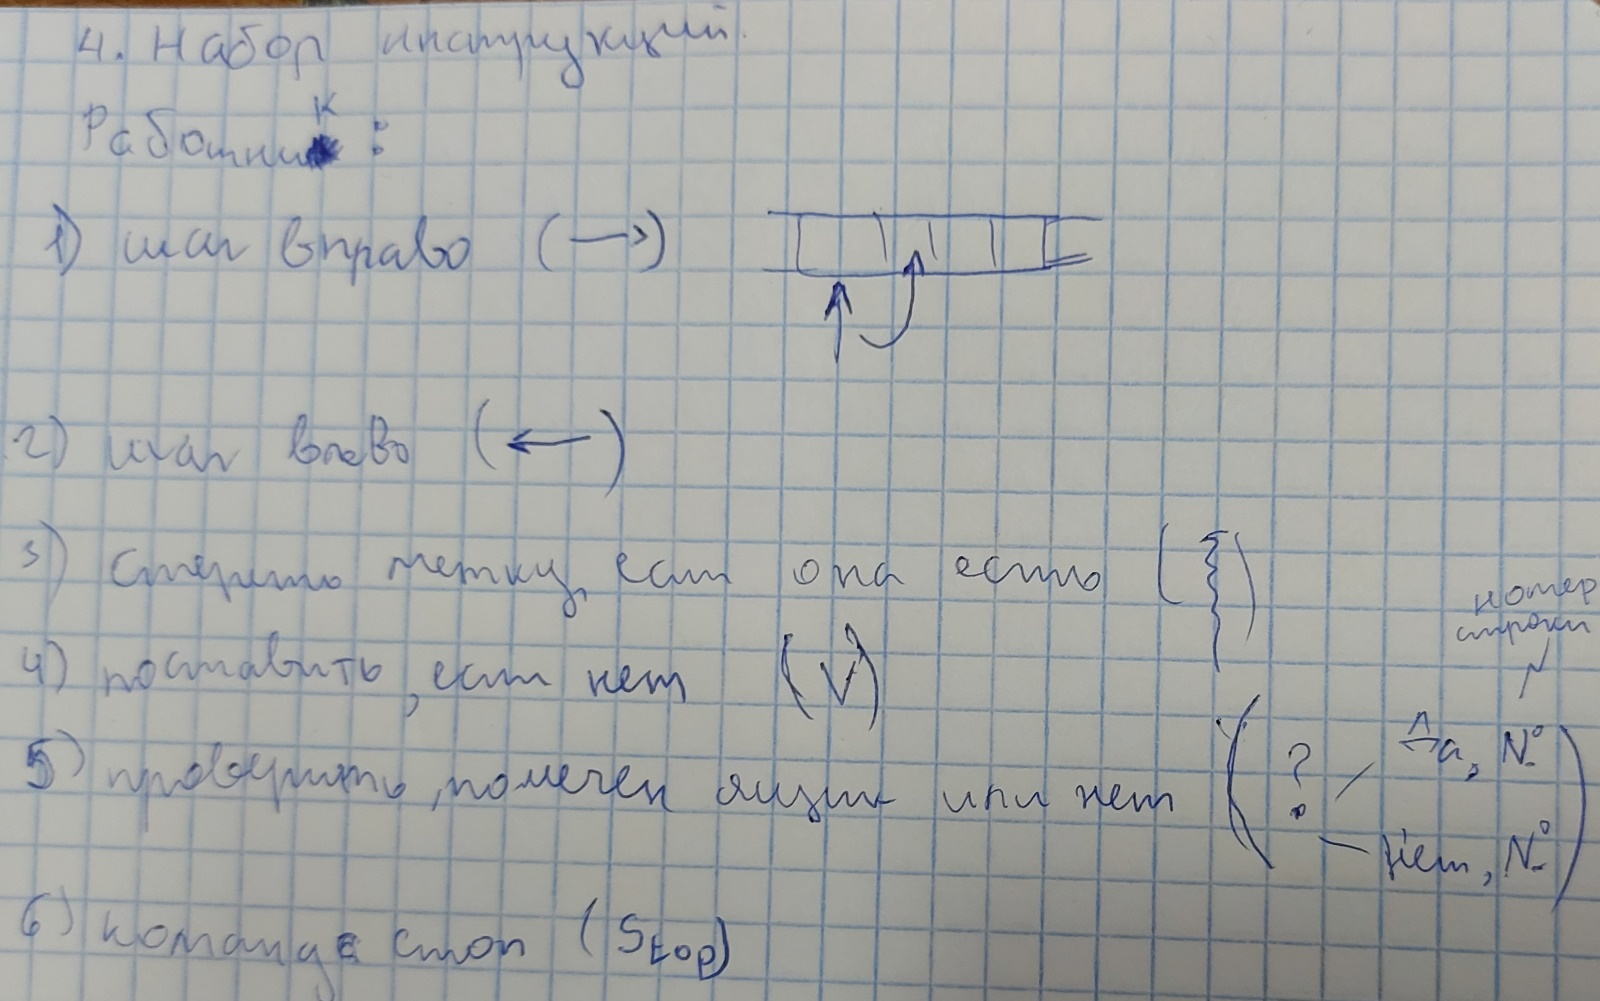 4. Набор инструкций.
Работник :
1) шаг вправо (→)
2) шаг влево (←)
3) стереть метку, если она есть
4) поставить, если нет (V)
номер
строки
5) проверить, помечен ящик или нет (? Да, №
Нет, №)
6) команда стоп (Stop)